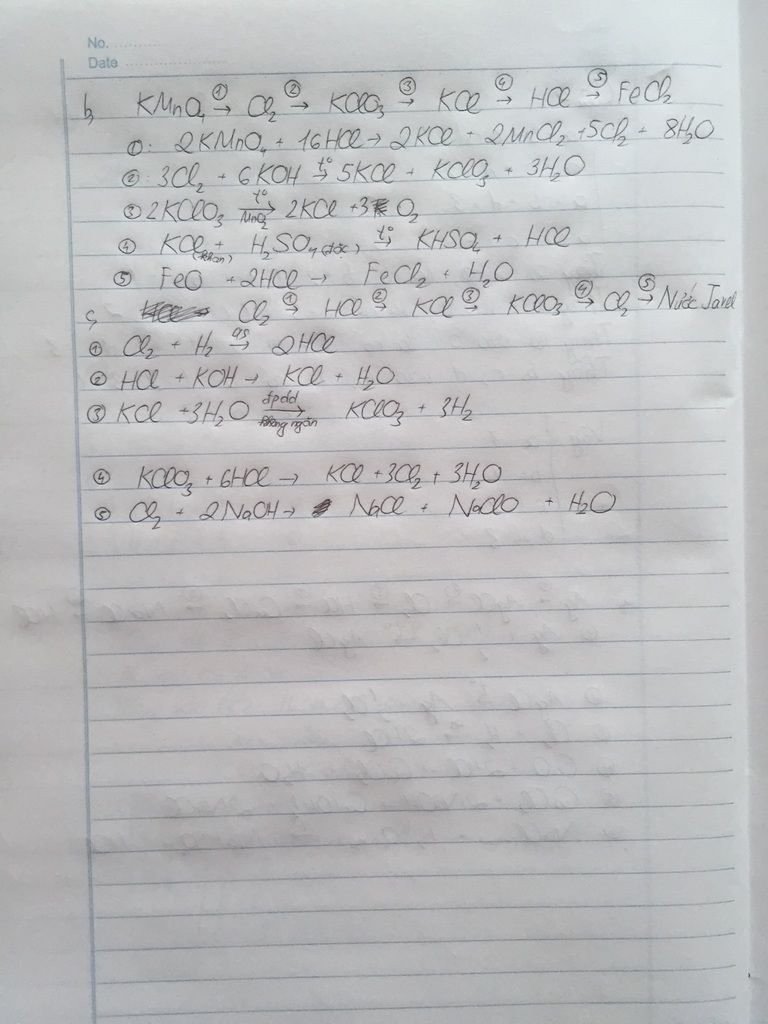 No. ............
Date ........................
b, KMnO₄ →① Cl₂ →② KClO₃ →③ KCl →④ HCl →⑤ FeCl₂
①: 2KMnO₄ + 16HCl → 2KCl + 2MnCl₂ + 5Cl₂ + 8H₂O
② 3Cl₂ + 6KOH →(t°) 5KCl + KClO₃ + 3H₂O
③ 2KClO₃ →(t°, MnO₂) 2KCl + 3O₂
④ KCl(khan) + H₂SO₄(đặc) →(t°) KHSO₄ + HCl
⑤ FeO + 2HCl → FeCl₂ + H₂O
c, Cl₂ →① HCl →② KCl →③ KClO₃ →④ Cl₂ →⑤ Nước Javel
① Cl₂ + H₂ →(as) 2HCl
② HCl + KOH → KCl + H₂O
③ KCl + 3H₂O →(đpdd, không ngăn) KClO₃ + 3H₂
④ KClO₃ + 6HCl → KCl + 3Cl₂ + 3H₂O
⑤ Cl₂ + 2NaOH → NaCl + NaClO + H₂O